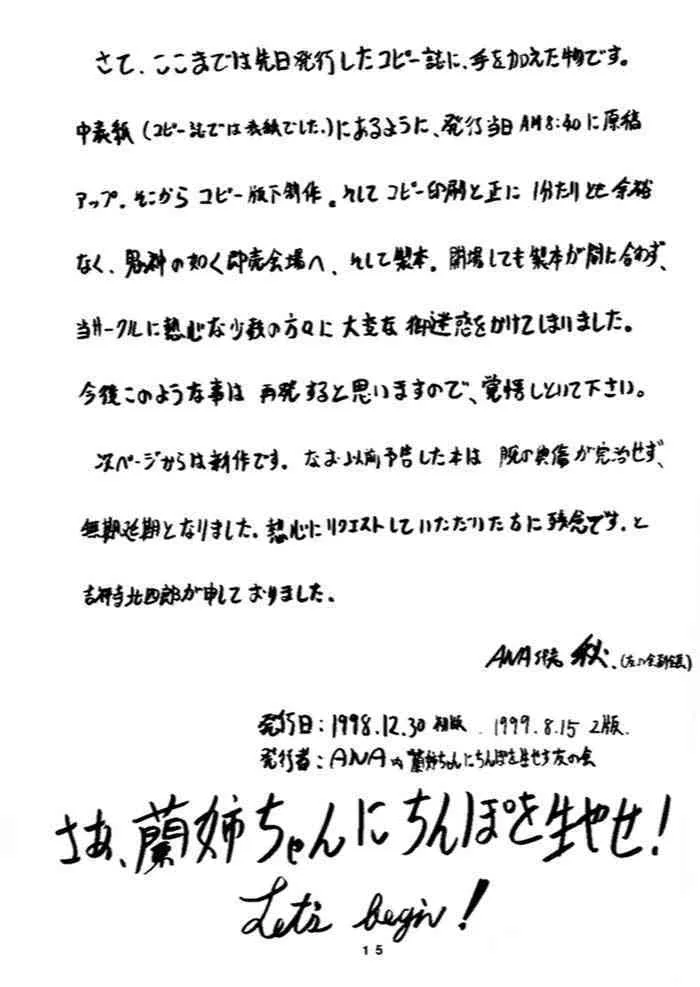 さて、ここまでは先日発行したコピー誌に、手を加えた物です。
中表紙(コピー誌では表紙でした。)にあるように、発行当日AM8:40に原稿
アップ。そこからコピー版下制作。そしてコピー印刷と正に1分たりとも余裕
なく、男神の如く即売会場へ、そして製本。開場しても製本が間に合わず、
当サークルに熱心な少数の方々に大変な御迷惑をかけてしまいました。
今後このような事は再発すると思いますので、覚悟しといて下さい。
次ページからは新作です。なお以前予告した本は 既の
が完治せず、
無期延期となりました。熱心にリクエストしていただいた方に残念です。と
吉祥寺北四郎が申しておりました。
ANA 秋.
発行日:1998.12.30 初版. 1999.8.15 2版.
発行者:ANA内 蘭姉ちゃんにちんぽを生やす友の会
さあ、蘭姉ちゃんにちんぽを生やせ!
Let's begin!
15